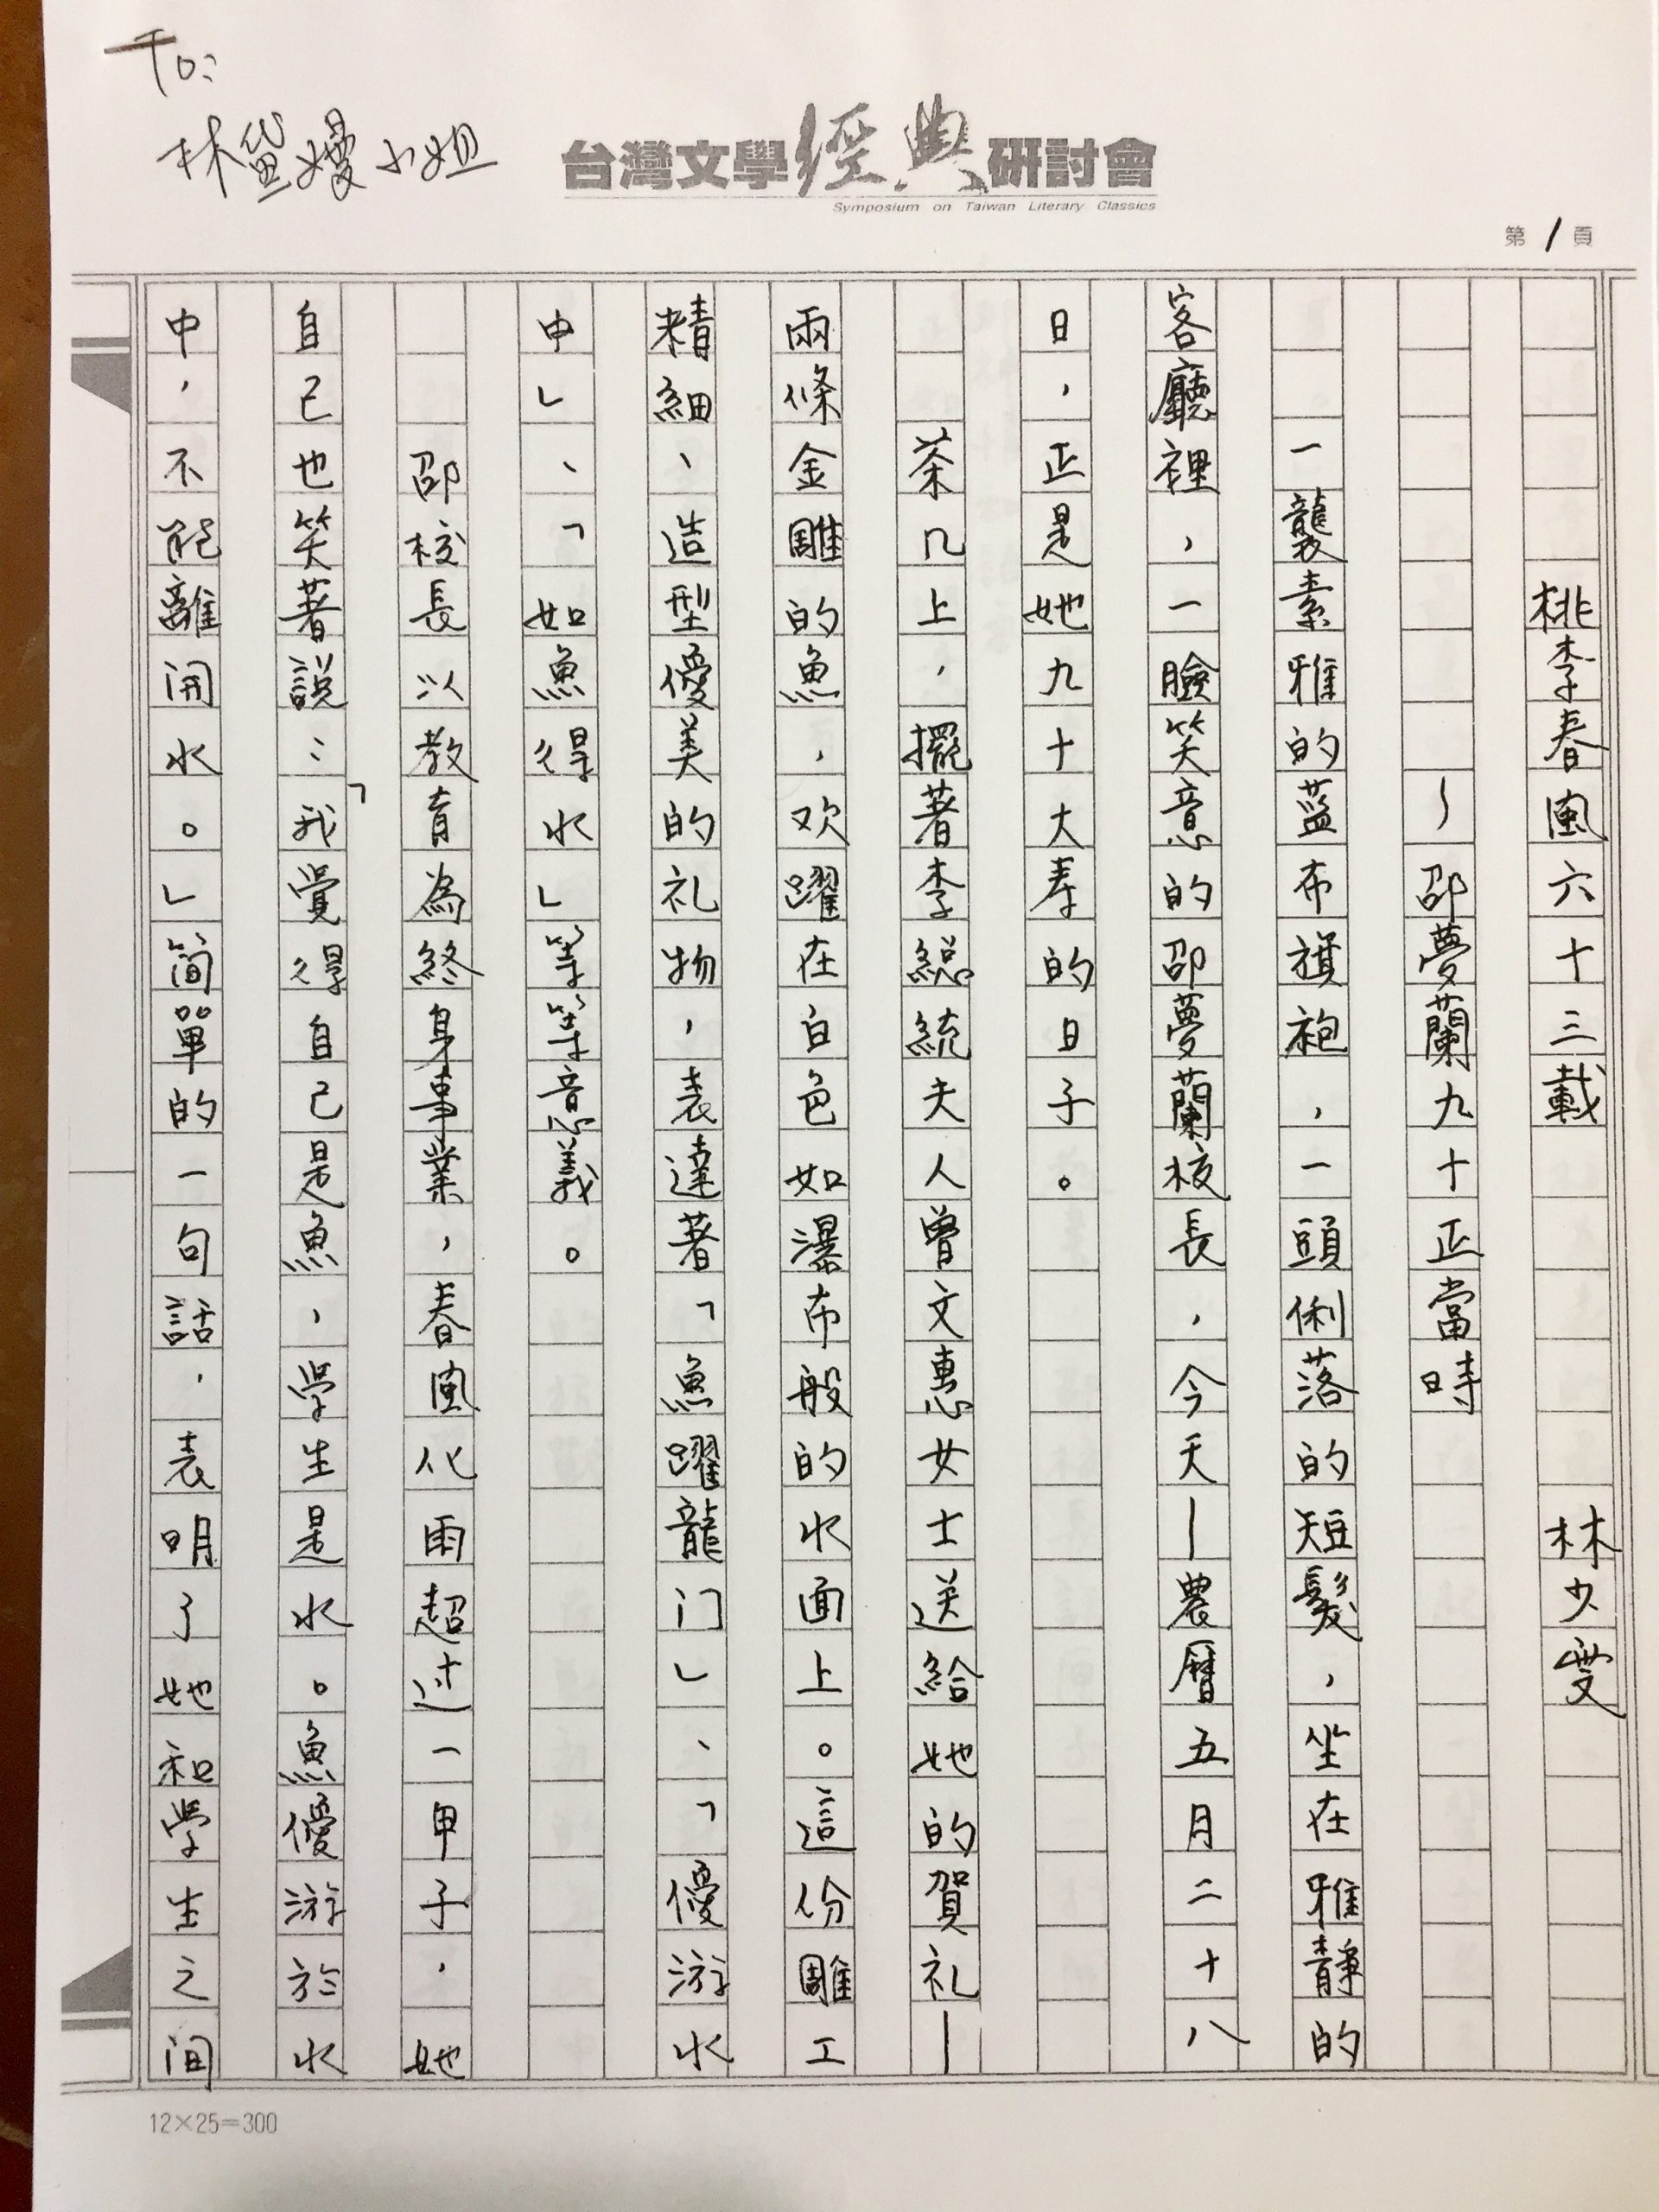 To:
林黛嫚小姐
台灣文學經典研討會
Symposium on Taiwan Literary Classics
第1頁
桃李春風六十三載 林少雯
—邵夢蘭九十正當時
一襲素雅的藍布旗袍，一頭俐落的短髮，坐在雅靜的
客廳裡，一臉笑意的邵夢蘭校長，今天—農曆五月二十八
日，正是她九十大寿的日子。
茶几上，擺著李總統夫人曾文惠女士送給她的賀礼—
兩條金雕的魚，欢躍在白色如瀑布般的水面上。這份雕工
精細、造型優美的礼物，表達著「魚躍龍门」、「優游水
中」、「如魚得水」等等意義。
邵校長以教育為終身事業，春風化雨超过一甲子，她
自己也笑著說：「我覺得自己是魚，学生是水。魚優游於水
中，不能離開水。」简單的一句話，表明了她和学生之间
12×25=300